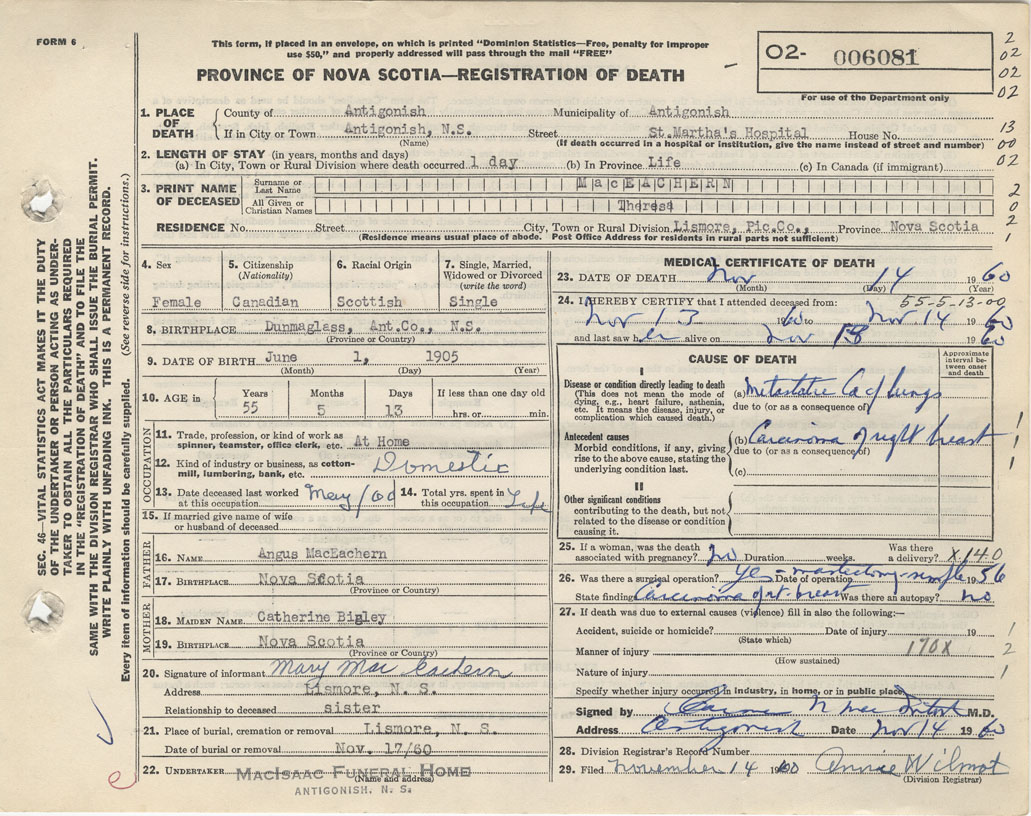 FORM 6
This form, if placed in an envelope, on which is printed "Dominion Statistics—Free, penalty for improper
use $50," and properly addressed will pass through the mail "FREE"
PROVINCE OF NOVA SCOTIA—REGISTRATION OF DEATH
02- 006081
For use of the Department only
2
02
02
02
1. PLACE OF DEATH
County of Antigonish Municipality of Antigonish
If in City or Town Antigonish, N.S. Street St.Martha's Hospital House No.
(Name) (If death occurred in a hospital or institution, give the name instead of street and number)
13
00
02
2. LENGTH OF STAY (in years, months and days)
(a) In City, Town or Rural Division where death occurred 1 day (b) In Province Life (c) In Canada (if immigrant)
3. PRINT NAME OF DECEASED
Surname or Last Name MacEACHERN
All Given or Christian Names Theresa
2
0
2
1
RESIDENCE No. Street City, Town or Rural Division Lismore, Pic.Co., Province Nova Scotia
(Residence means usual place of abode. Post Office Address for residents in rural parts not sufficient)
SEC. 46—VITAL STATISTICS ACT MAKES IT THE DUTY
OF THE UNDERTAKER OR PERSON ACTING AS UNDER-
TAKER TO OBTAIN ALL THE PARTICULARS REQUIRED
IN THE "REGISTRATION OF DEATH" AND TO FILE THE
SAME WITH THE DIVISION REGISTRAR WHO SHALL ISSUE THE BURIAL PERMIT.
WRITE PLAINLY WITH UNFADING INK. THIS IS A PERMANENT RECORD.
Every item of information should be carefully supplied. (See reverse side for instructions.)
4. Sex
Female
5. Citizenship
(Nationality)
Canadian
6. Racial Origin
Scottish
7. Single, Married,
Widowed or Divorced
(write the word)
Single
8. BIRTHPLACE Dunmaglass, Ant.Co., N.S.
(Province or Country)
9. DATE OF BIRTH June 1, 1905
(Month) (Day) (Year)
10. AGE in
Years Months Days If less than one day
55 5 13 hrs. or min.
OCCUPATION
11. Trade, profession, or kind of work as
spinner, teamster, office clerk, etc. At Home
12. Kind of industry or business, as cotton-
mill, lumbering, bank, etc. Domestic
13. Date deceased last worked
at this occupation May/60
14. Total yrs. spent in
this occupation Life
15. If married give name of wife
or husband of deceased
FATHER
16. NAME Angus MacEachern
17. BIRTHPLACE Nova Scotia
(Province or Country)
MOTHER
18. MAIDEN NAME Catherine Bigley
19. BIRTHPLACE Nova Scotia
(Province or Country)
20. Signature of informant Mary MacEachern
Address Lismore, N. S.
Relationship to deceased sister
21. Place of burial, cremation or removal Lismore, N. S.
Date of burial or removal Nov. 17/60
22. UNDERTAKER MACISAAC FUNERAL HOME
(Name and address)
ANTIGONISH, N. S.
MEDICAL CERTIFICATE OF DEATH
23. DATE OF DEATH Nov 14 1960
(Month) (Day) (Year)
55-5-13-00
24. I HEREBY CERTIFY that I attended deceased from:
Nov 13 1960 to Nov. 14 1960
and last saw her alive on Nov 13 1960
CAUSE OF DEATH
Approximate
interval be-
tween onset
and death
I
Disease or condition directly leading to death
(This does not mean the mode of
dying, e.g., heart failure, asthenia,
etc. It means the disease, injury, or
complication which caused death.)
(a) Metastatic Ca of lungs
due to (or as a consequence of)
Antecedent causes
Morbid conditions, if any, giving
rise to the above cause, stating the
underlying condition last.
(b) Carcinoma of right breast
due to (or as a consequence of)
(c)
1
1
1
II
Other significant conditions
contributing to the death, but not
related to the disease or condition
causing it.
25. If a woman, was the death
associated with pregnancy? no Duration weeks. Was there
a delivery? X140
26. Was there a surgical operation? yes - mastectomy-simple Date of operation 1956
State finding Carcinoma of rt. breast Was there an autopsy? no
27. If death was due to external causes (violence) fill in also the following:—
Accident, suicide or homicide? Date of injury 19
(State which)
Manner of injury 170X
(How sustained)
Nature of injury
1
2
1
Specify whether injury occurred in industry, in home, or in public place
Signed by MacIntosh M.D.
Address Antigonish Date Nov 14 1960
28. Division Registrar's Record Number
29. Filed November 14 1960 Annie Wilmot
(Division Registrar)